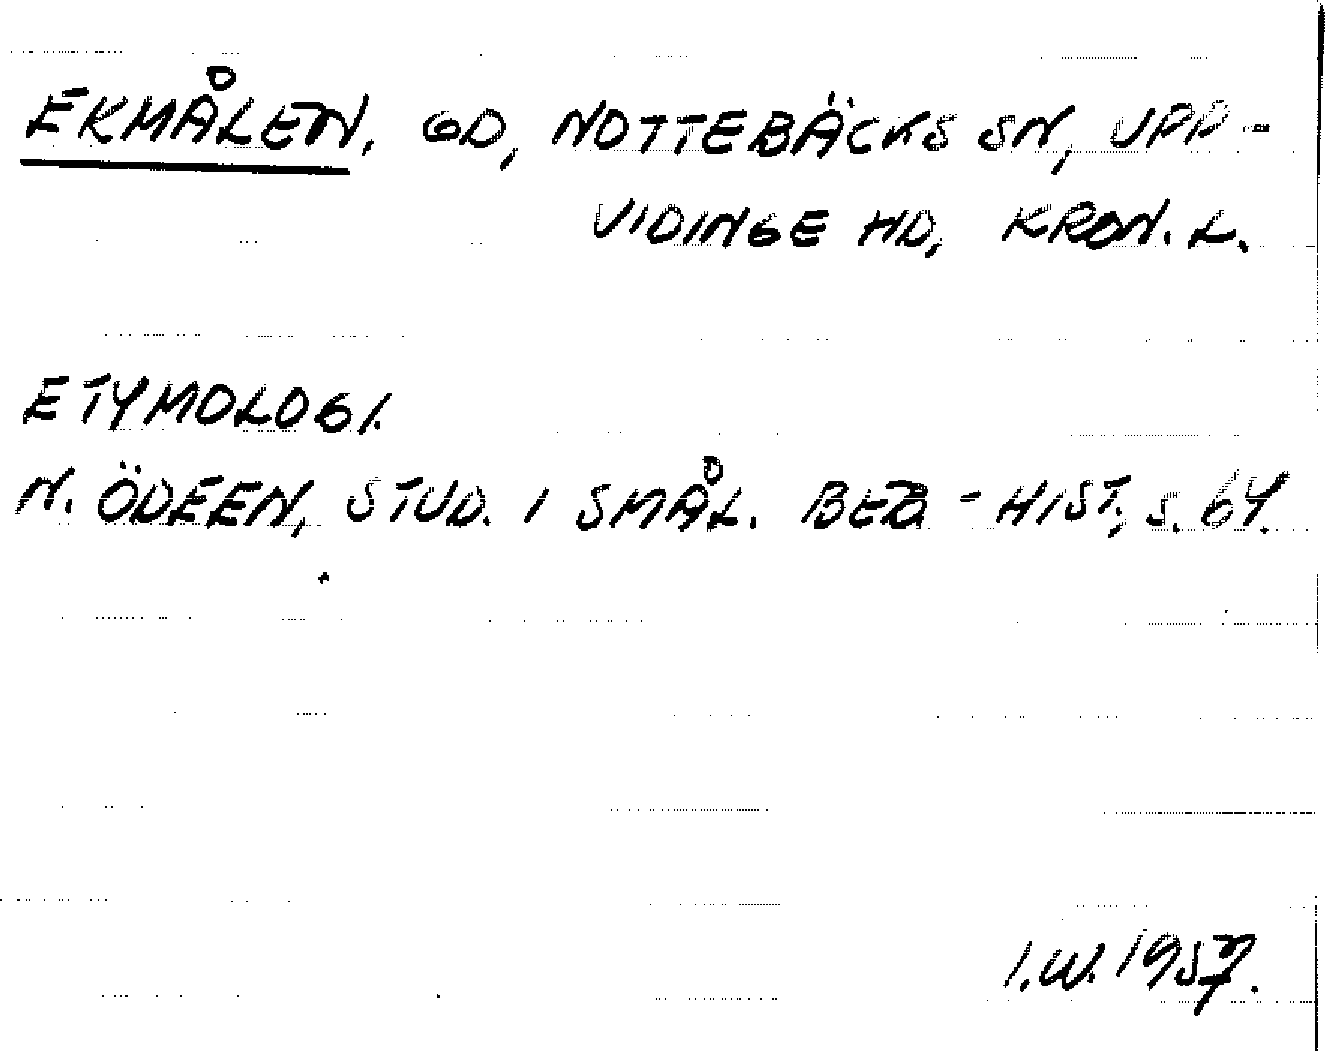 EKMÅLEN, GD, NOTTEBÄCKS SN, UPP-
VIDINGE HD, KRON. L.
ETYMOLOGI.
N. ÖDEEN, STUD. I SMÅL. BEB-HIST., S. 64.
I.W. 1957.